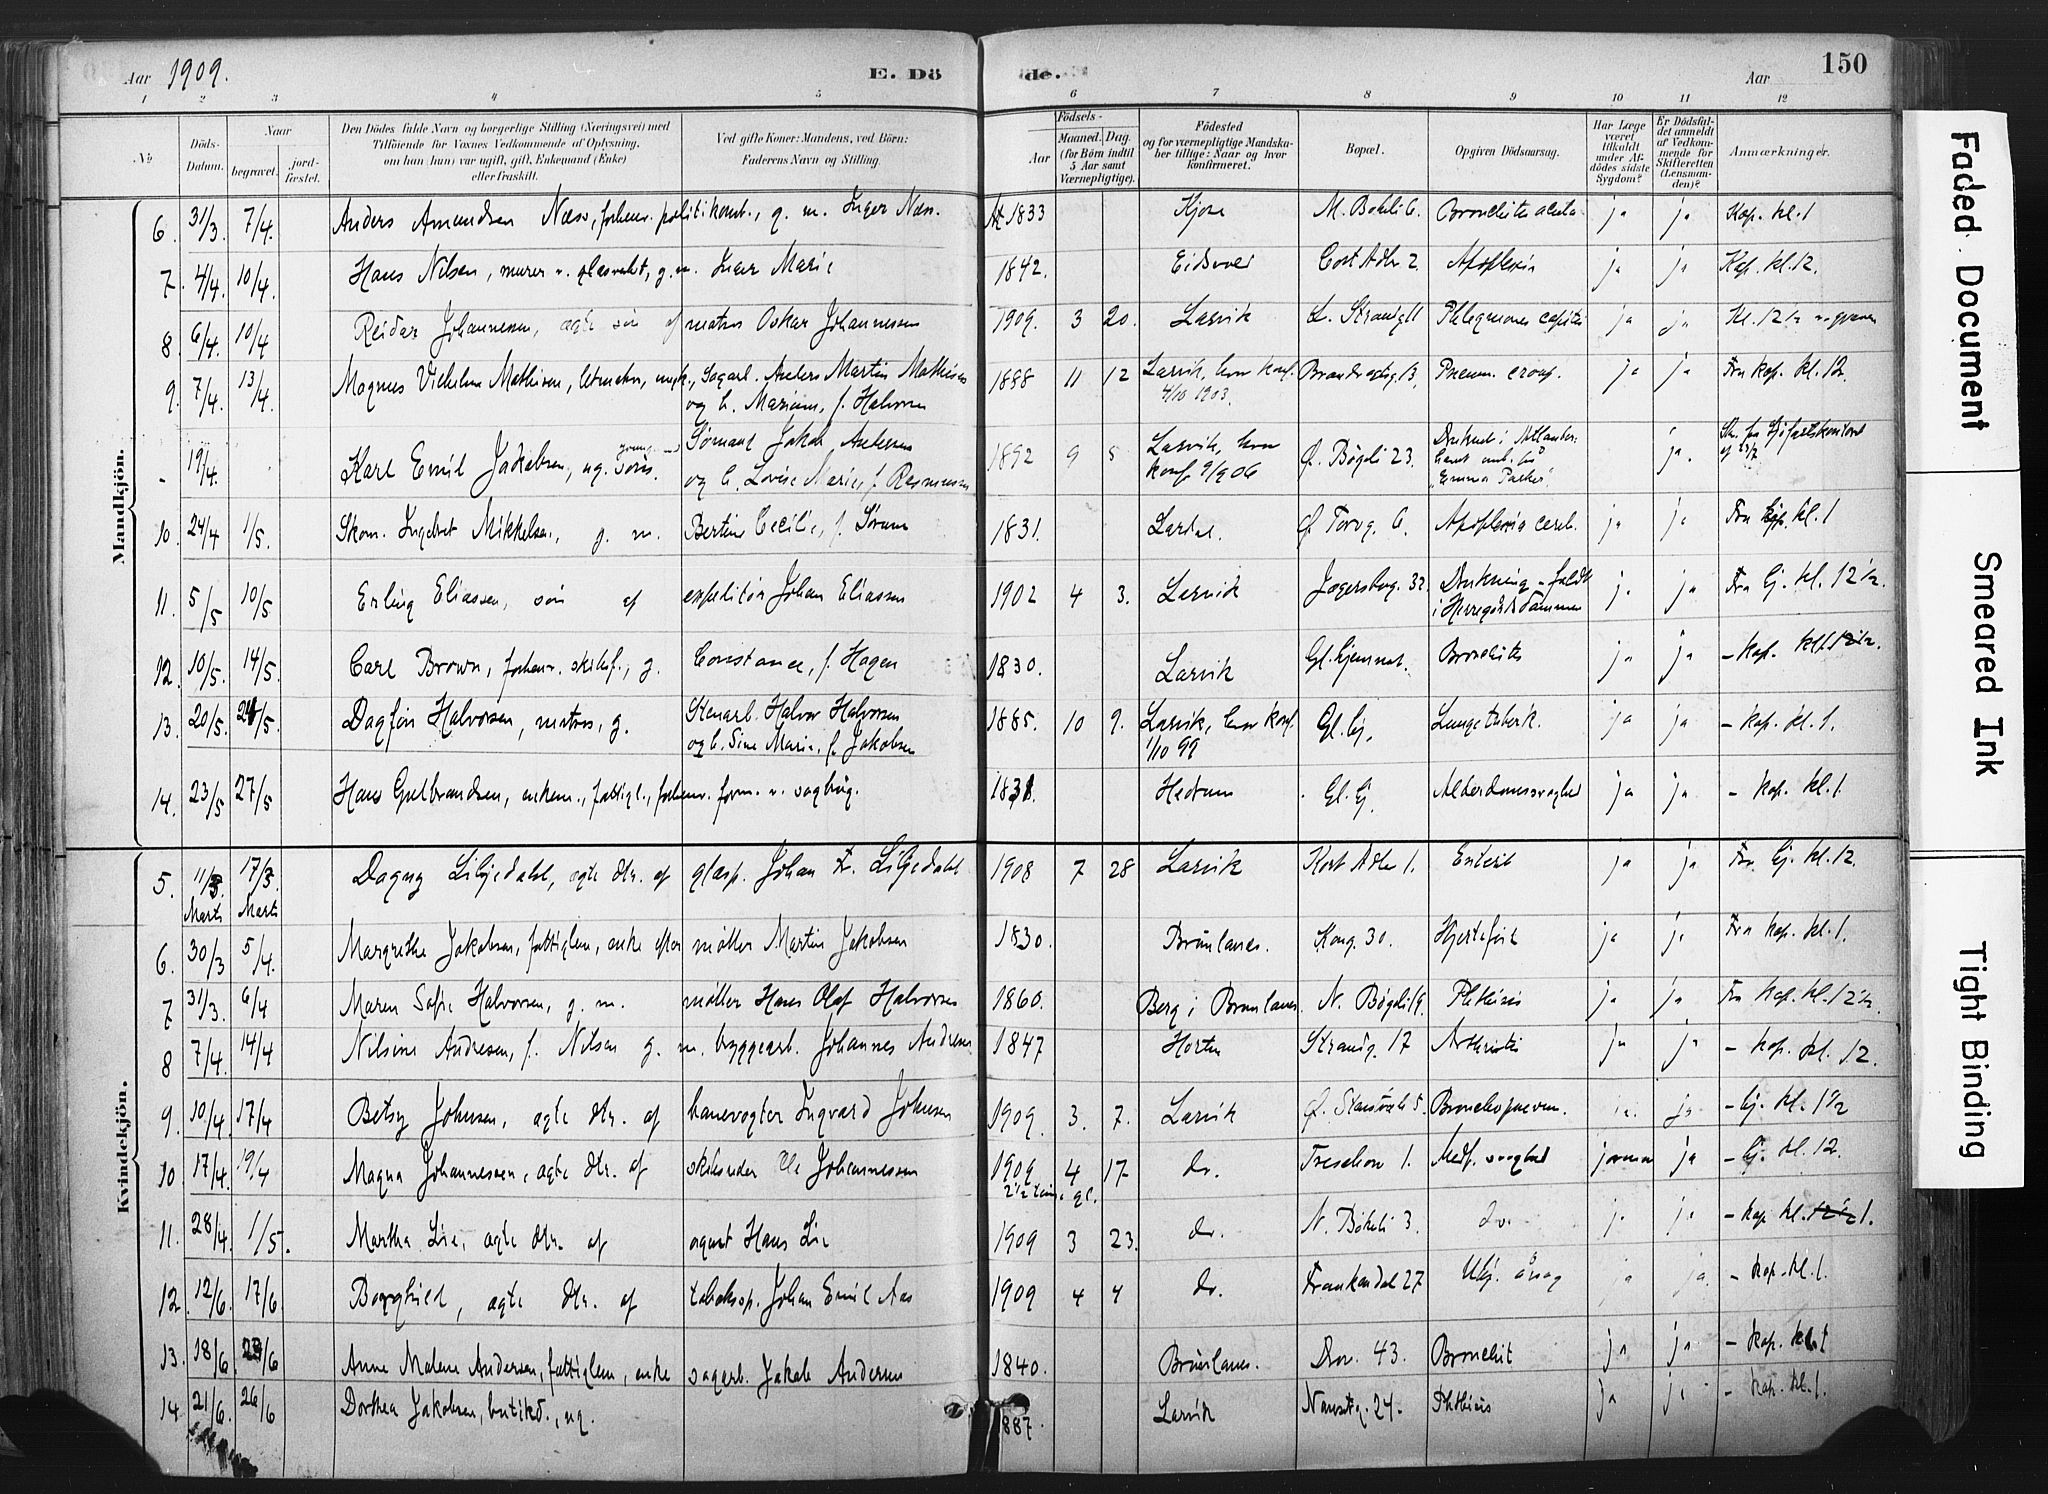 Aar 1909. E. Dö de. Aar 150
1 2 3 4 5 6 7 8 9 10 11 12
No. Döds-Datum. Naar begravet. jord-fæstet.
Den Dödes fulde Navn og borgerlige Stilling (Næringsvei) med
Tilföiende for Voxnes Vedkommende af Oplysning,
om han (hun) var ugift, gift, Enkemand (Enke)
eller fraskilt.
Ved gifte Koner: Mandens, ved Börn:
Faderens Navn og Stilling.
Födsels-
Aar Maaned. Dag.
(for Börn indtil
5 Aar samt
Værnepligtige).
Födested
og for værnepligtige Mandska-
ber tillige: Naar og hvor
konfirmeret.
Bopæl.
Opgiven Dödsaarsag.
Har Læge
været
tilkaldt
under Af-
dödes sidste
Sygdom?
Er Dödsfal-
det anmeldt
af Vedkom-
mende for
Skifteretten
(Lensman-
den)?
Anmærkninger.
Mandkjön.
6. 31/3. 7/4. Anders Amundsen Næss, g. m. Inger Næss. 1833 Kjose M. Bøkeli 6. Bronchitis acuta ja ja Kap. kl. 1
7. 4/4. 10/4. Hans Nilsen, murer g. m. Inger Marie 1842. Eidsvol Cort Adler 2. Apoplexia ja ja Kap. kl. 12.
8. 6/4. 10/4 Reidar Johannesen, ægte søn af matros Oskar Johannessen 1909. 3 20. Larvik Strandg 11 Phlegmone capitis ja ja
9. 7/4. 13/4. Magnus Vilhelm Mathisen, Sagarb. Anders Martin Mathisen 1888 11 12 Larvik, hvor konf. 13, Pneum. croup. ja ja Fra kap. kl. 12.
og h. Mariane, f. Halvorsen 4/10 1903.
- 19/4. Karl Emil Jakobsen, ug. Sømand Jakob Andersen 1892 9 5 Larvik, hvor Ø. Bøgeli 23. ja.
og h. Lovise Marie, f. Rasmussen konf. 9/9 06 "Emma Parker".
10. 24/4 1/5. Skom. Ingebret Mikkelsen, g. m. Bertine Cecilie, f. Sørum 1831. Lardal. Ø. Torvg. 6. Apoplexia cereb. ja ja Fra kap. kl. 1
11. 5/5 10/5 Erling Eliassen, søn af expeditør Johan Eliassen 1902 4 3. Larvik Jegersborg. 32. Drukning - faldt ja ja Fra Gj. kl. 12 1/2.
i Herregårdsdammen
12. 10/5. 14/5. Carl Brown, forhenv. g. Constance, f. Hagen 1830. Larvik Gl.hjemmet. Bronchitis ja ja - kap. kl. 12 1/2.
13. 20/5. 24/5. Dagfin Halvorsen, matros, g. Stenarb. Halvor Halvorsen 1885. 10 9. Larvik, hvor konf. Gl. hj. Lungetuberk. ja ja - kap. kl. 1.
og h. Sine Marie, f. Jakobsen 1/10 99
14. 23/5 27/5 Hans Gulbrandsen, enkem., fattigl., forhenv. form. v. sagbrug. 1831. Hedrum Gl. hj. Alderdomssvaghed ja ja - kap. kl. 1.
Kvindekjön.
5. 11/3. 17/3. Dagny Liljedahl, ægte dtr. af glasp. Johan F. Liljedahl 1908 7 28 Larvik Kort Adler 1. Enterit ja ja Fra hj. kl. 12.
Marts Marts
6. 30/3 5/4. Margrethe Jakobsen, fattiglem, enke efter møller Martin Jakobsen 1830. Brunlanes. Kong. 30. Hjertefeil ja ja Fra kap. kl. 1.
7 31/3. 6/4 Maren Sofie Halvorsen, g. m. møller Hans Olaf Halvorsen 1860. Berg i Brunlanes. N. Bøgeli 9. Phthisis ja ja Fra kap. kl. 12 1/2
8 7/4. 14/4 Nilsine Andresen, f. Nilsen g. m. byggearb. Johannes Andresen 1847 Horten Strandg. 17 ja ja - kap. kl. 12.
9. 10/4. 17/4 Betsy Johnsen, ægte dtr. af banevogter Ingvard Johnsen 1909. 3. 7. Larvik Bronchopneum. ja. ja - hj. kl. 1 1/2
10 17/4. 19/4 Magna Johannessen, ægte dtr. af Johannessen 1909 4 17. do. Treschow 1. Medf. svaghed jormor ja - hj. kl. 12.
2 1/2 time gl.
11. 28/4. 1/5. Martha Lie, ægte dtr. af agent Hans Lie 1909 3 23. do. N. Bøkeli 3. do. ja ja - kap kl. 12 1/2 1.
12. 12/6. 17/6 Borghild, ægte dtr. af tobaksp. Johan Emil Aas 1909 4 4 do. Frankendal 27 Ubj. årsag ja ja. - kap. kl. 1.
13. 18/6. 23/6 Anne Malene Andersen, fattiglem, enke sagarb. Jakob Andersen 1840. Brunlanes. Dron. 43. Bronchit ja ja - kap. kl. 1
14 21/6. 26/6 Dorthea Jakobsen, butikd., ug. 1887. Larvik Nansetg. 24. Phthisis ja ja - kap. kl. 1.
Faded Document
Smeared Ink
Tight Binding